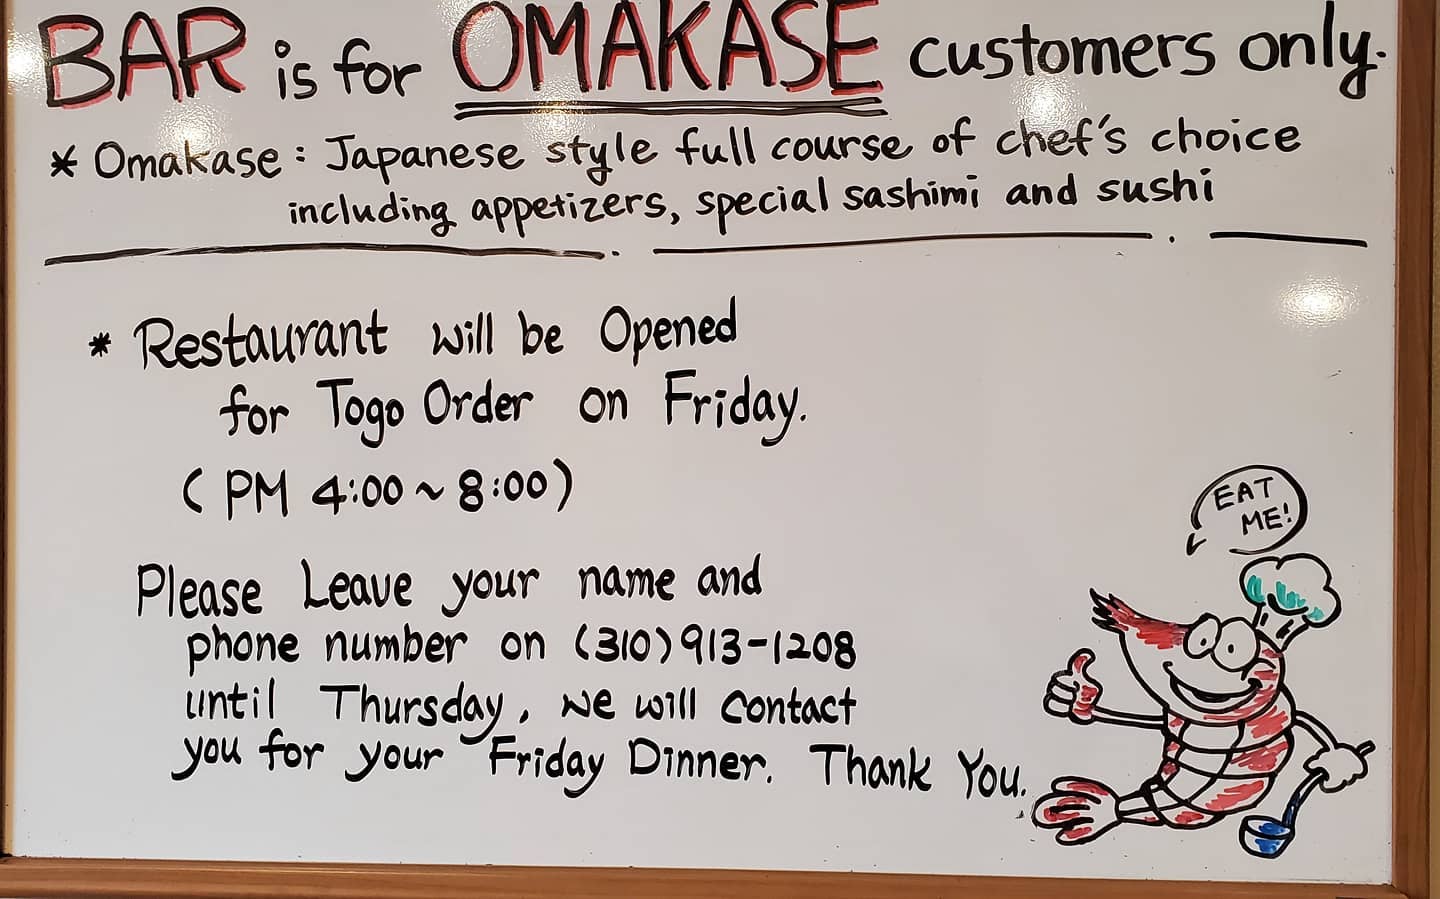 BAR is for OMAKASE customers only.
* Omakase : Japanese style full course of chef's choice
including appetizers, special sashimi and sushi
* Restaurant will be Opened
for Togo Order on Friday.
( PM 4:00 ~ 8:00 )
Please Leave your name and
phone number on (310)913-1208
until Thursday, we will contact
you for your Friday Dinner. Thank You.
EAT
ME!